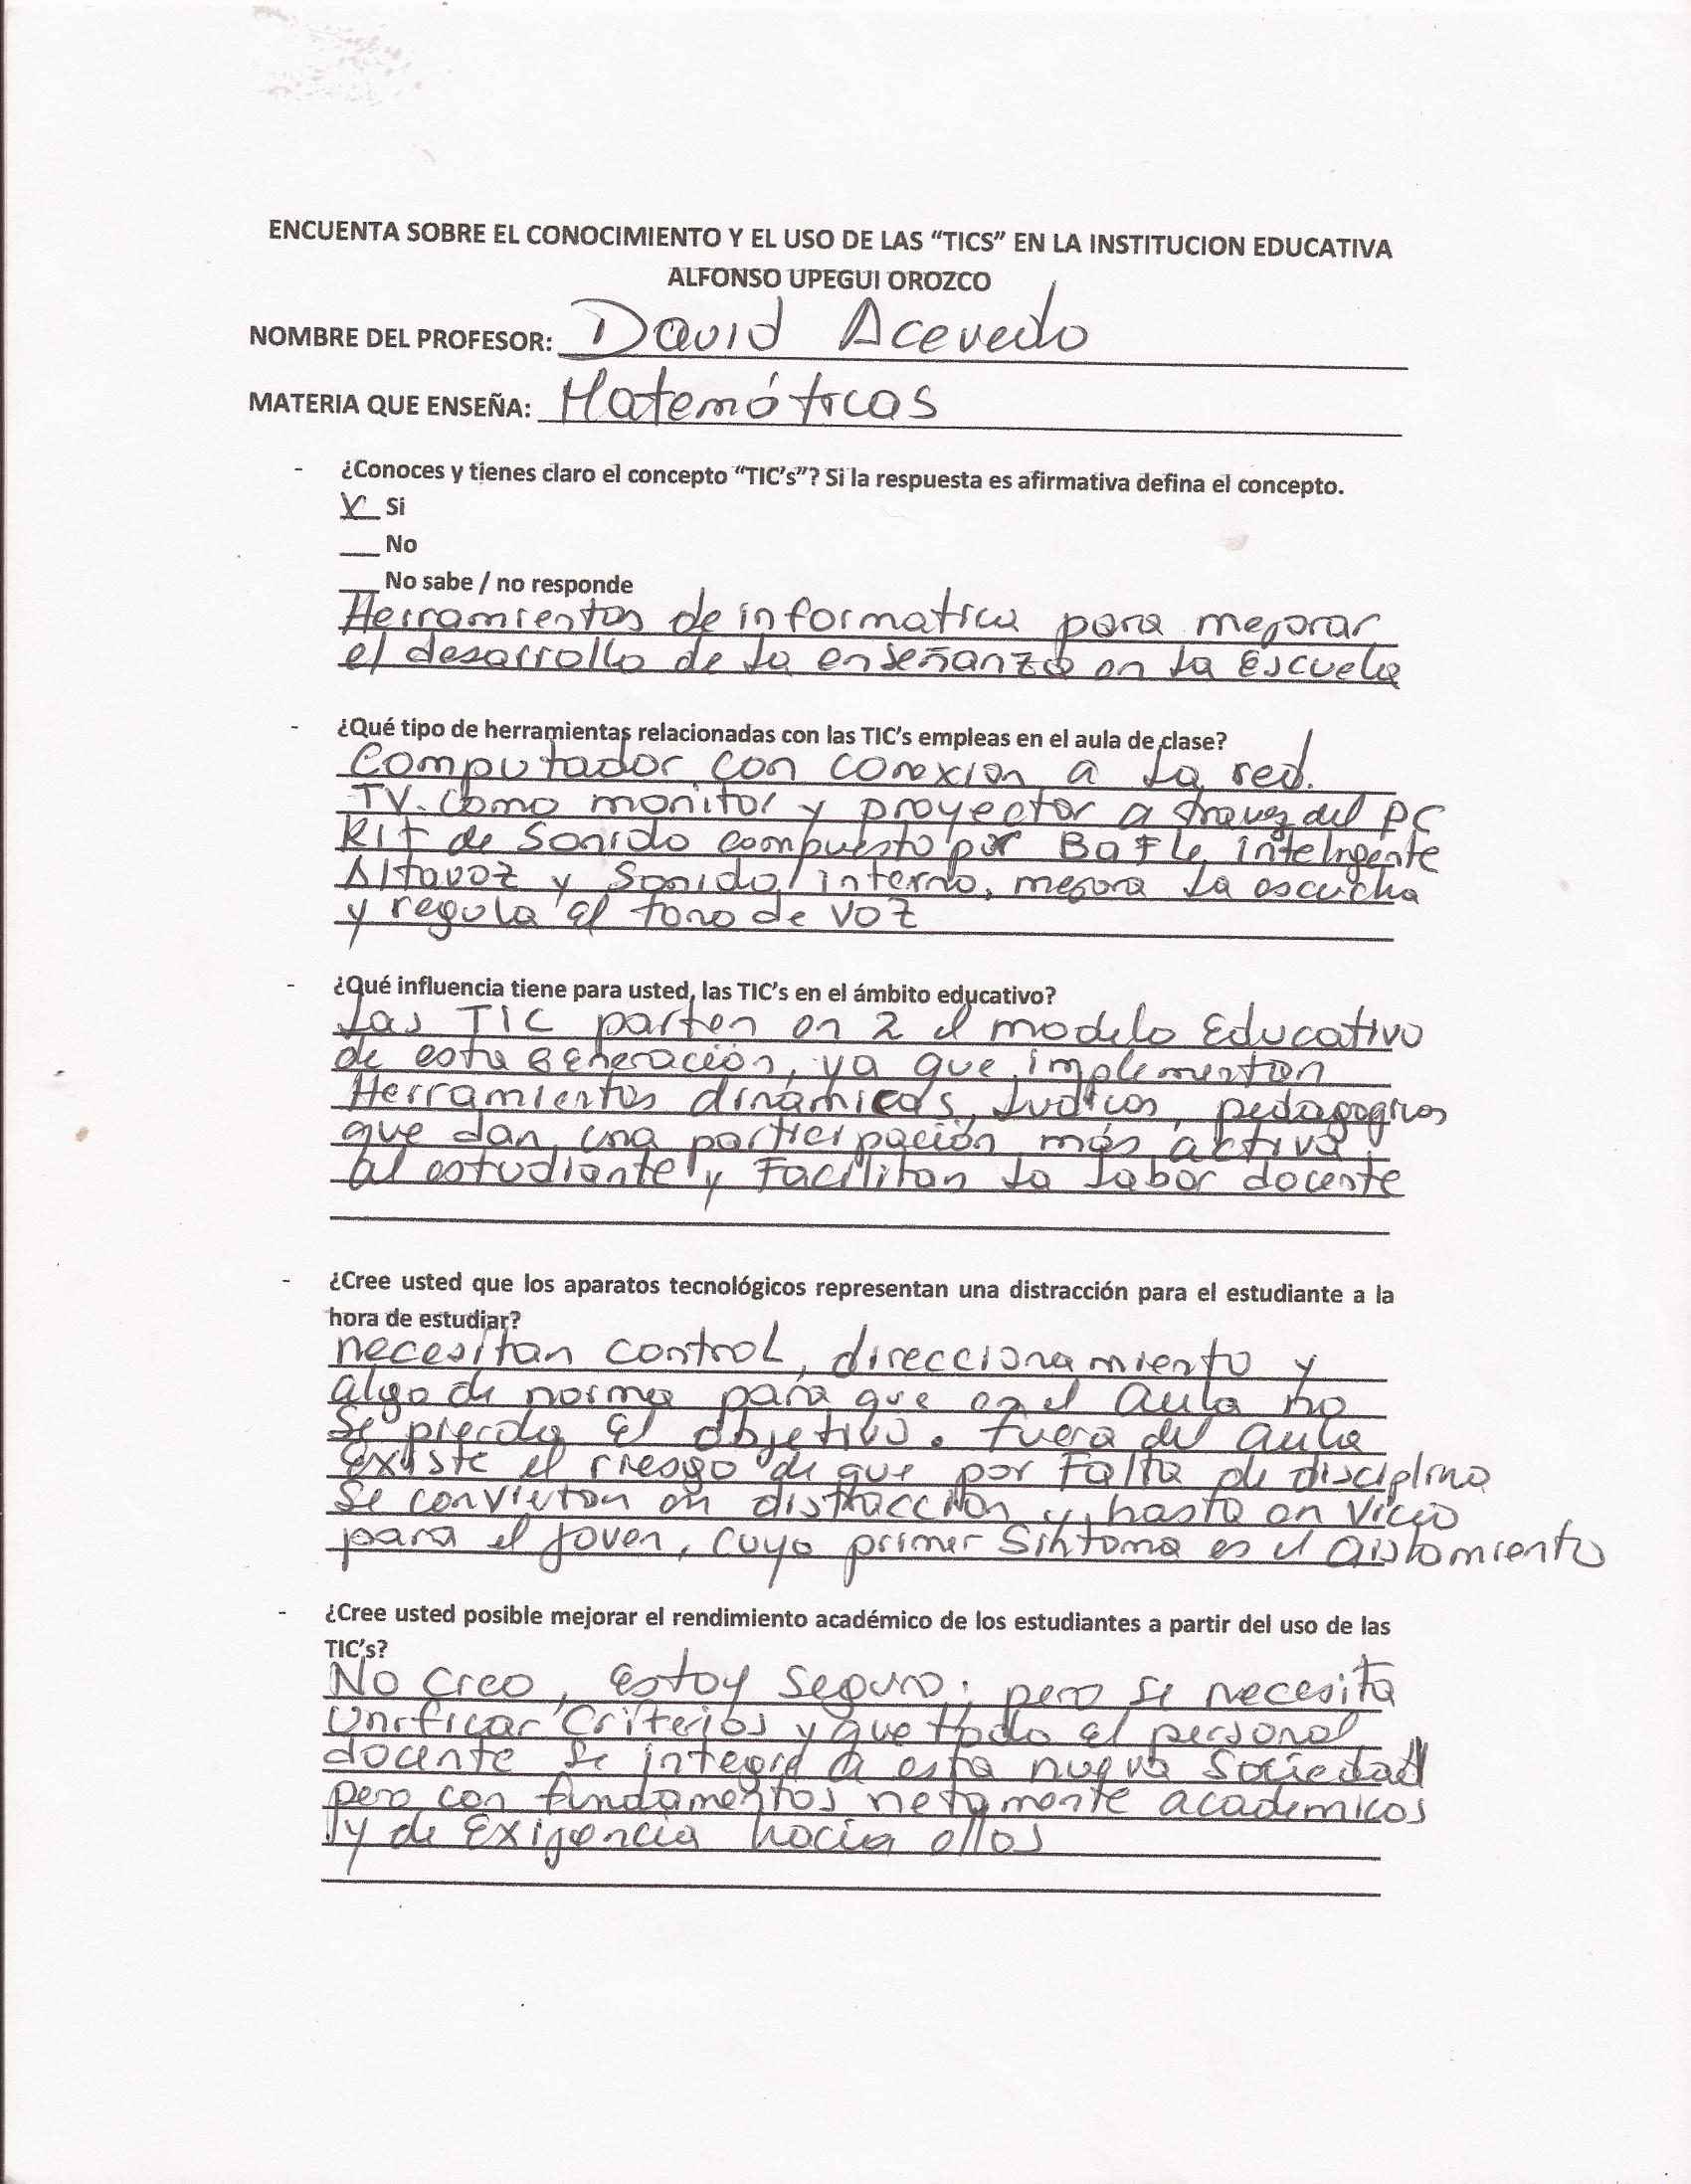 ENCUENTA SOBRE EL CONOCIMIENTO Y EL USO DE LAS “TICS” EN LA INSTITUCION EDUCATIVA
ALFONSO UPEGUI OROZCO
NOMBRE DEL PROFESOR: David Acevedo
MATERIA QUE ENSEÑA: Matemáticas
- ¿Conoces y tienes claro el concepto “TIC’s”? Si la respuesta es afirmativa defina el concepto.
X Si
___ No
___ No sabe / no responde
Herramientas de informatica para mejorar
el desarrollo de la enseñanza en la Escuela
- ¿Qué tipo de herramientas relacionadas con las TIC’s empleas en el aula de clase?
Computador con conexion a la red.
TV. Como monitor y proyector a travez del PC
Kit de Sonido compuesto por Bafle inteligente
Altavoz y Sonido interno, mejora la escucha
y regula el tono de voz
- ¿Qué influencia tiene para usted, las TIC’s en el ámbito educativo?
Las TIC parten en 2 el modelo Educativo
de esta Generación, ya que implementan
Herramientas dinámicas, Ludicas, pedagogicas
que dan una participación más activa
al estudiante y Facilitan la labor docente
- ¿Cree usted que los aparatos tecnológicos representan una distracción para el estudiante a la
hora de estudiar?
necesitan control, direccionamiento y
algo de norma para que en el Aula no
Se pierda El objetivo. fuera del aula
Existe el riesgo de que por Falta de disciplina
Se conviertan en distracción y hasta en vicio
para el joven, cuyo primer Sintoma es el aislamiento
- ¿Cree usted posible mejorar el rendimiento académico de los estudiantes a partir del uso de las
TIC’s?
No Creo, Estoy Seguro; pero se necesita
Unificar Criterios y que todo el personal
docente Se integre a esta nueva Sociedad
pero con fundamentos netamente academicos
y de Exigencia hacia ellos